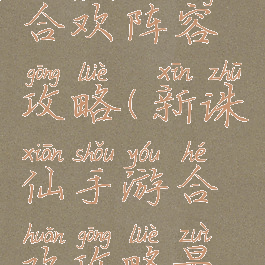 合欢阵容
gōng lüè xīn zhū
攻略(新诛
xiān shǒu yóu hé
仙手游合
huān gōng lüè zuì
欢攻略最